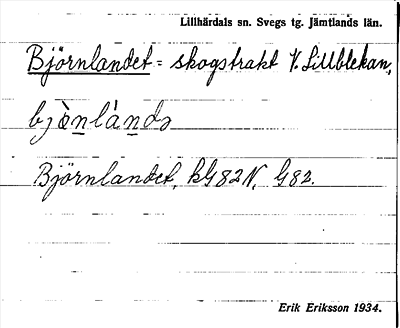 Lillhärdals sn. Svegs tg. Jämtlands län.
Björnlandet = skogstrakt V. Lillblekan,
bjö̀nlándə
Björnlandet, kG82N, G82.
Erik Eriksson 1934.